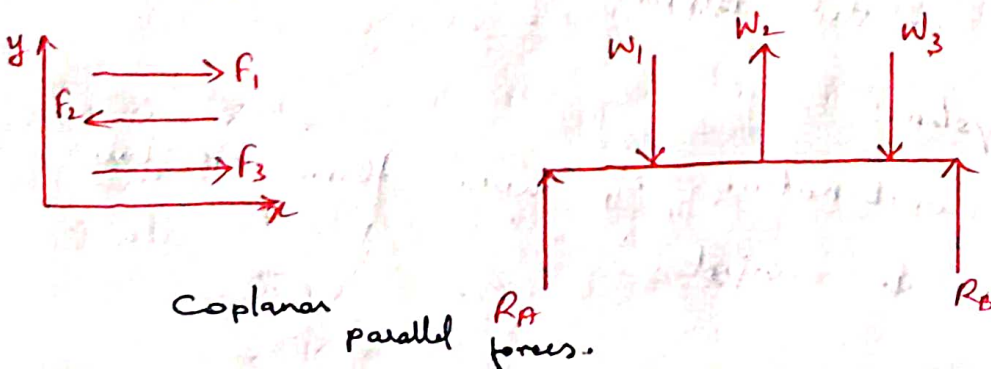 y
F₁
F₂
F₃
x
W₁
W₂
W₃
R_A
R_B
Coplanar
parallel forces.